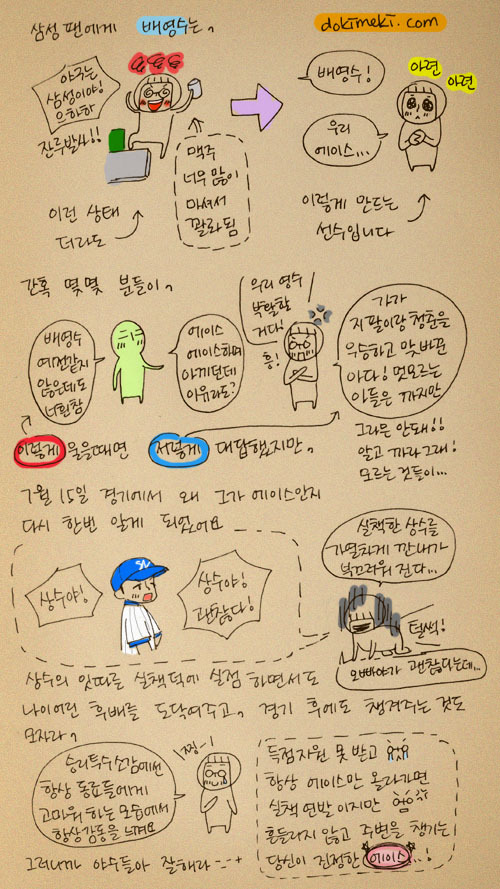 삼성 팬에게 배영수는,
dokimeki.com
야구는
삼성이야!
으하하
잔루발사!!
이런 상태
더라도
맥주
너무 많이
마셔서
꽐라 됨
배영수!
우리
에이스...
아련
아련
이렇게 만드는
선수입니다
간혹 몇몇 분들이,
배영수
예전같지
않은데도
너흰참
에이스
에이스하며
아끼던데
이유라도?
우리 영수
박탈할
거다!
흥!
가가
지 팔이랑 청춘을
우승하고 맞바꾼
아다! 멋모르는
아들은 까지만
그라믄 안돼!!
알고 까라그래!
모르는 것들이...
이렇게 물을때면 저렇게 대답했지만,
7월 15일 경기에서 왜 그가 에이스인지
다시 한번 알게 되었어요
상수야!
상수야!
괜찮다!
실책한 상수를
가열차게 깐 내가
부끄러워 진다...
털썩!
오빠야가 괜찮다는데...
상수의 잇따른 실책덕에 실점 하면서도
나이어린 후배를 도닥여주고, 경기 후에도 챙겨주는 것도
모자라,
승리투수소감에선
항상 동료들에게
고마워 하는 모습에서
항상감동을 느껴요
찡-!
득점지원 못 받고
항상 에이스만 올라가면
실책 연발 이지만
흔들리지 않고 주변을 챙기는
당신이 진정한 에이스...!
그러니까 야수들아 잘해라 --+